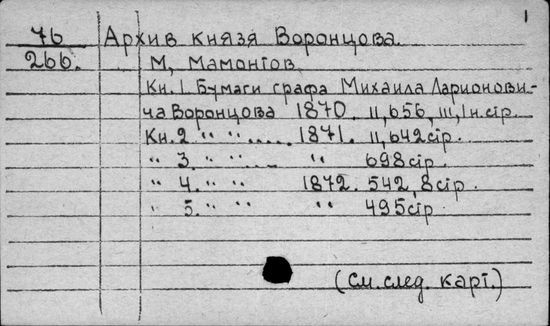 1
76 Архив князя Воронцова.
266. М, Мамонтов.
Кн. 1. Бумаги графа Михаила Ларионови-
ча Воронцова 1870. II, 656, III, 1н.стр.
Кн. 2 " " ..... 1871. II, 642стр.
" 3. " " .... " 698стр.
" 4. " " 1872. 542, 8стр.
" 5. " " " 495стр.
(См. след. карт.)